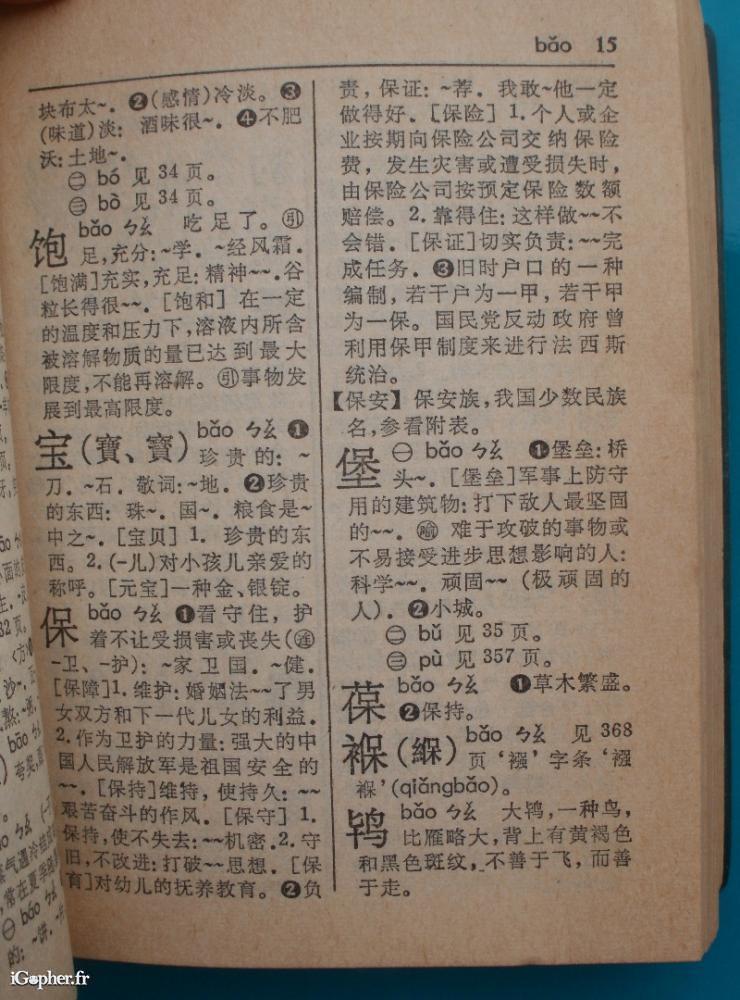 bǎo 15
块布太~. ❷(感情)冷淡。❸
(味道)淡: 酒味很~. ❹不肥
沃:土地~.
㊁ bó 见 34 页.
㊂ bò 见 34 页.
饱 bǎo ㄅㄠˇ 吃足了. ㊕
足,充分:~学. ~经风霜.
[饱满]充实,充足:精神~~.谷
粒长得很~~. [饱和] 在一定
的温度和压力下,溶液内所含
被溶解物质的量已达到最大
限度,不能再溶解. 引事物发
展到最高限度.
宝(寶、寳) bǎo ㄅㄠˇ ❶
珍贵的: ~
刀. ~石. 敬词:~地. ❷珍贵
的东西: 珠~. 国~. 粮食是~
中之~. [宝贝] 1. 珍贵的东
西. 2. (-儿)对小孩儿亲爱的
称呼. [元宝]一种金、银锭.
保 bǎo ㄅㄠˇ ❶看守住, 护
着不让受损害或丧失(连
-卫、-护): ~家卫国. ~健.
[保障]1. 维护: 婚姻法~~了男
女双方和下一代儿女的利益.
2. 作为卫护的力量: 强大的中
国人民解放军是祖国安全的
~~. [保持]维持, 使持久: ~~
艰苦奋斗的作风. [保守] 1.
保持,使不失去:~~机密.2. 守
旧,不改进: 打破~~思想. [保
育]对幼儿的抚养教育. ❷负
责, 保证: ~荐. 我敢~他一定
做得好. [保险] 1. 个人或企
业按期向保险公司交纳保险
费, 发生灾害或遭受损失时,
由保险公司按预定保险数额
赔偿. 2. 靠得住: 这样做~~不
会错. [保证]切实负责: ~~完
成任务. ❸旧时户口的一种
编制, 若干户为一甲, 若干甲
为一保。国民党反动政府曾
利用保甲制度来进行法西斯
统治。
【保安】 保安族,我国少数民族
名,参看附表。
堡 ㊀ bǎo ㄅㄠˇ ❶堡垒: 桥
头~. [堡垒]军事上防守
用的建筑物: 打下敌人最坚固
的~~. 喻 难于攻破的事物或
不易接受进步思想影响的人:
科学~~. 顽固~~ (极顽固的
人). ❷小城。
㊁ bǔ 见 35 页.
㊂ pù 见 357 页.
葆 bǎo ㄅㄠˇ ❶草木繁盛。
❷保持。
褓(緥) bǎo ㄅㄠˇ 见 368
页 ‘襁’ 字条 ‘襁
褓’(qiǎngbǎo).
鸨 bǎo ㄅㄠˇ 大鸨, 一种鸟,
比雁略大, 背上有黄褐色
和黑色斑纹, 不善于飞, 而善
于走。
iGopher.fr